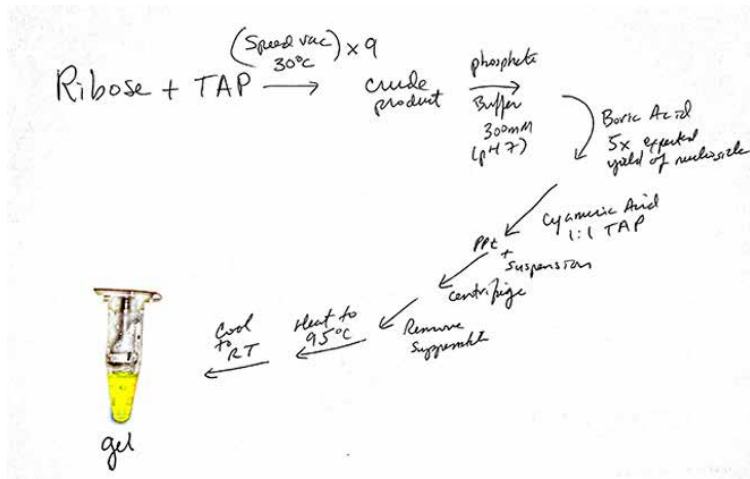 (Speed vac) x 9
30°C
Ribose + TAP
crude
product
phosphate
Buffer
300mM
(pH 7)
Boric Acid
5x expected
yield of nucleoside
Cyanuric Acid
1:1 TAP
PPt
+
Suspension
centrifige
Remove
Heat to
95°C
Cool
to
RT
gel